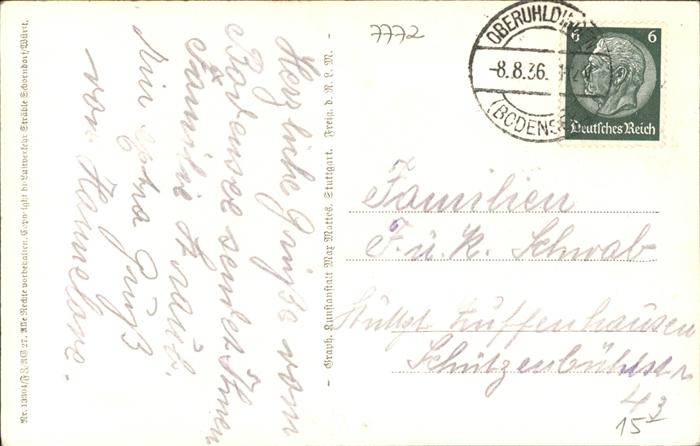 7772
OBERUHLDINGEN
-8.8.36.
(BODENSEE)
6 6
Deutsches Reich
Herzliche Grüße vom
Bodensee sendet Ihnen
Familie
Ein extra Gruß
von Hannelore.
Familien
F. u. K. Schwab
Stuttgt Zuffenhausen
Schützenbühlstr
43
15
Graph. Kunstanstalt Max Mattes, Stuttgart. Freig. d. R. L. M.
Nr. 13304/ Alle Rechte vorbehalten. Copyright by Luftverkehr Strähle Schorndorf/Württ.